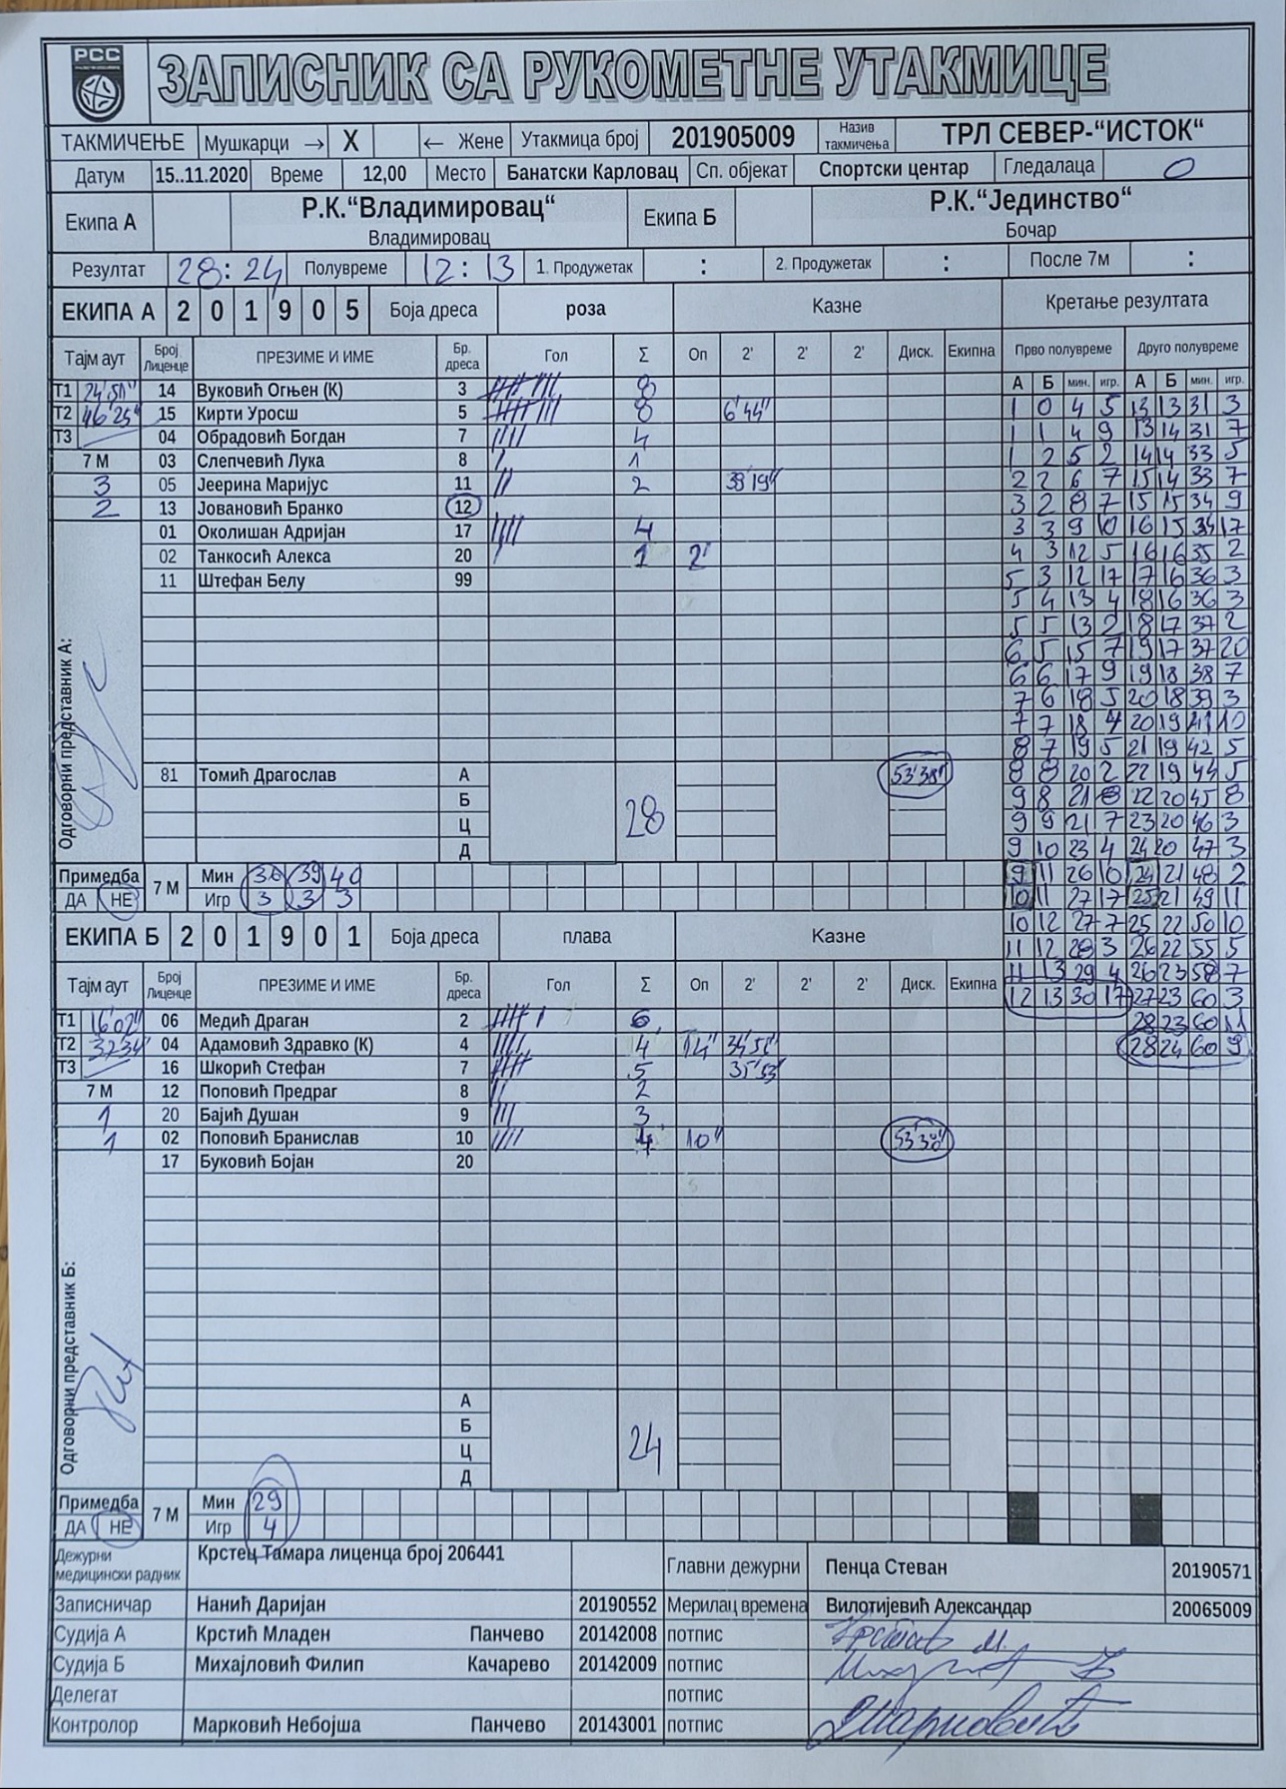 РСС
ЗАПИСНИК СА РУКОМЕТНЕ УТАКМИЦЕ
ТАКМИЧЕЊЕ Мушкарци → X ← Жене Утакмица број 201905009 Назив такмичења ТРЛ СЕВЕР-“ИСТОК“
Датум 15..11.2020 Време 12,00 Место Банатски Карловац Сп. објекат Спортски центар Гледалаца 0
Екипа А Р.К.“Владимировац“ Екипа Б Р.К.“Јединство“
Владимировац Бочар
Резултат 28:24 Полувреме 12:13 1. Продужетак : 2. Продужетак : После 7м :
ЕКИПА А 2 0 1 9 0 5 Боја дреса роза Казне Кретање резултата
Тајм аут Број Лиценце ПРЕЗИМЕ И ИМЕ Бр. дреса Гол Σ Оп 2' 2' 2' Диск. Екипна Прво полувреме Друго полувреме
А Б мин. игр. А Б мин. игр.
Т1 24'51" 14 Вуковић Огњен (К) 3 8 1 0 4 5 13 13 31 3
Т2 46'25" 15 Кирти Уросш 5 8 6'44" 1 1 4 9 13 14 31 7
Т3 04 Обрадовић Богдан 7 4 1 2 5 2 14 14 33 5
7 М 03 Слепчевић Лука 8 1 2 2 6 7 15 14 33 7
3 05 Јеерина Маријус 11 2 39'19" 3 2 8 7 15 15 34 9
2 13 Јовановић Бранко 12 3 3 9 10 16 15 34 17
01 Околишан Адријан 17 4 4 3 12 5 16 16 35 2
02 Танкосић Алекса 20 1 2' 5 3 12 17 17 16 36 3
11 Штефан Белу 99 5 4 13 4 18 16 36 3
5 5 13 2 18 17 37 2
6 5 15 7 19 17 37 20
6 6 17 9 19 18 38 7
7 6 18 5 20 18 39 3
7 7 18 4 20 19 41 10
8 7 19 5 21 19 42 5
81 Томић Драгослав А 53'38" 8 8 20 2 22 19 44 5
Б 28 9 8 21 8 22 20 45 8
Ц 9 9 21 7 23 20 46 3
Д 9 10 23 4 24 20 47 3
Одговорни представник А:
Примедба 7 М Мин 36 39 49 9 11 26 10 24 21 48 2
ДА НЕ Игр 3 3 3 10 11 27 17 25 21 49 11
ЕКИПА Б 2 0 1 9 0 1 Боја дреса плава Казне 10 12 27 7 25 22 50 10
11 12 28 3 26 22 55 5
Тајм аут Број Лиценце ПРЕЗИМЕ И ИМЕ Бр. дреса Гол Σ Оп 2' 2' 2' Диск. Екипна 11 13 29 4 26 23 58 7
12 13 30 17 27 23 60 3
Т1 16'02" 06 Медић Драган 2 6 28 23 60 11
Т2 37'34" 04 Адамовић Здравко (К) 4 4 14" 28 24 60 9
Т3 16 Шкорић Стефан 7 5 35'53"
7 М 12 Поповић Предраг 8 2
1 20 Бајић Душан 9 3
1 02 Поповић Бранислав 10 4 10" 53'38"
17 Буковић Бојан 20
Одговорни представник Б:
А
Б 24
Ц
Д
Примедба 7 М Мин 29
ДА НЕ Игр 4
Дежурни медицински радник Крстец Тамара лиценца број 206441 Главни дежурни Пенца Стеван 20190571
Записничар Нанић Даријан 20190552 Мерилац времена Вилотијевић Александар 20065009
Судија А Крстић Младен Панчево 20142008 потпис
Судија Б Михајловић Филип Качарево 20142009 потпис
Делегат потпис
Контролор Марковић Небојша Панчево 20143001 потпис